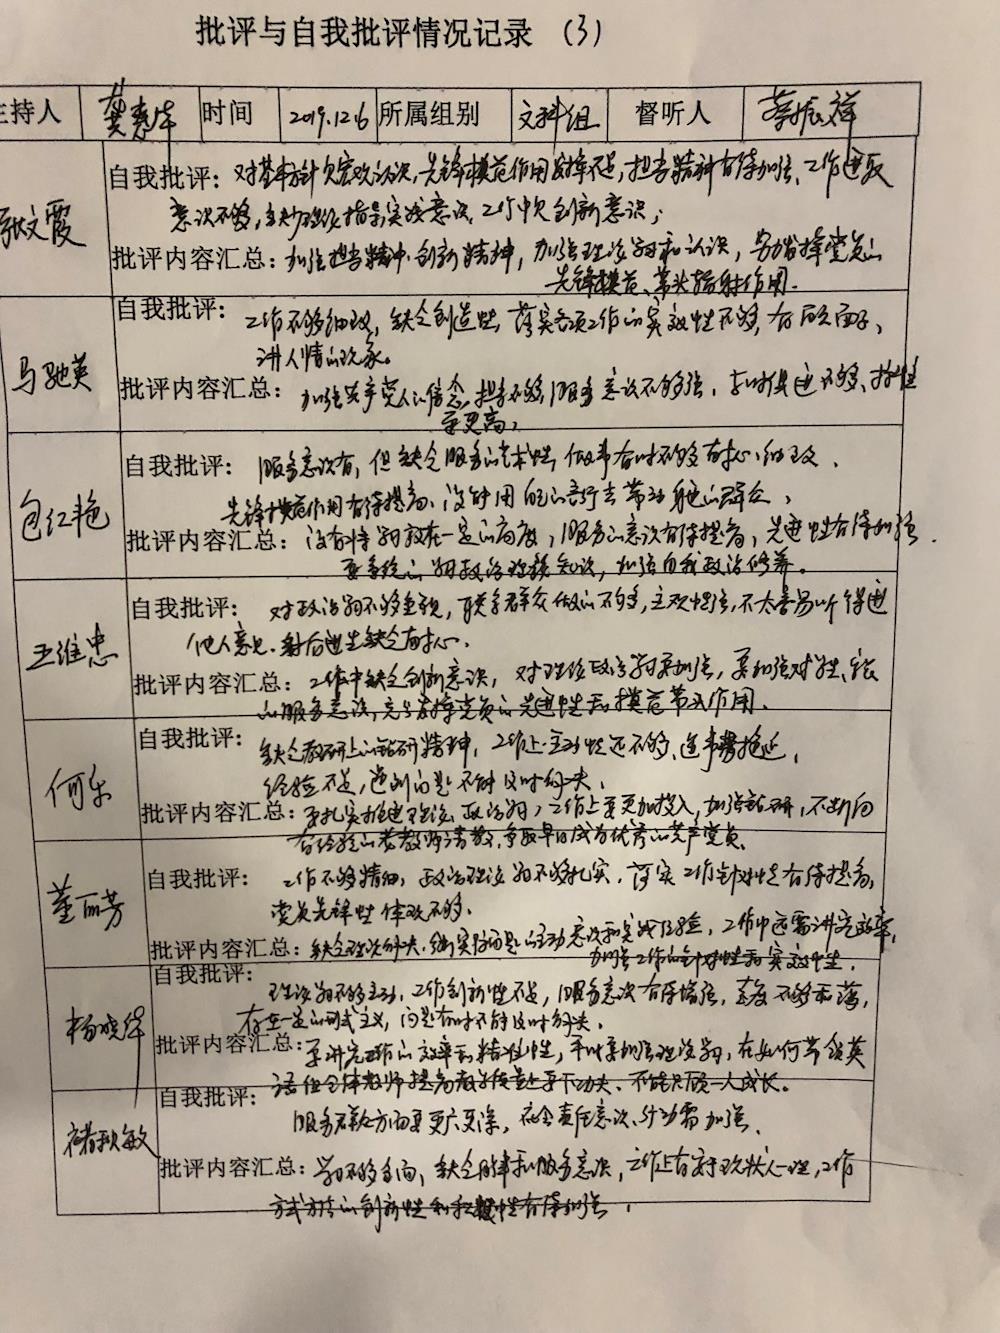 批评与自我批评情况记录 (3)
主持人 龚惠华 时间 2019.12.6 所属组别 文科组 督听人 蔡振祥
张文霞
自我批评：对基本方针欠宏观认识，先锋模范作用发挥不足，担当精神有待加强、工作进取
意识不够，缺少理论指导实践意识，工作中欠创新意识；
批评内容汇总：加强担当精神、创新精神，加强理论学习和认识，努力发挥党员的
先锋模范、带头辐射作用.
马驰英
自我批评：工作不够细致，缺乏创造性，落实各项工作的实效性不够，有顾面子、
讲人情的现象。
批评内容汇总：加强共产党人的信念，担当不够，服务意识不够强，
要更高；
包红艳
自我批评：服务意识有，但缺乏服务的艺术性，做事有时不够有耐心、细致、
先锋模范作用有待提高、没能用自己的言行去带动身边的群众、
批评内容汇总：没有将学习放在一定的高度，服务的意识有待提高，先进性有待加强.
要系统的学习政治理论知识，加强自我政治修养。
王维忠
自我批评：对政治学习不够重视，联系群众做的不够，主观性强，不太容易听得进
他人意见、对后进生缺乏耐心.
批评内容汇总：工作中缺乏创新意识，对理论政治学习要加强，要加强对
的服务意识，充分发挥党员的先进性和模范带头作用.
何乐
自我批评：缺乏教研上的钻研精神，工作上主动性还不够、遇事易拖延，
经验不足，遇到问题不能及时解决.
批评内容汇总：要扎实推进理论、政治学习，工作上要更加投入，加强钻研，不断向
有经验的老教师请教，争取早日成为优秀的共产党员.
董丽芳
自我批评：工作不够精细，政治理论学习不够扎实，落实工作针对性有待提高，
党员先锋性体现不够.
批评内容汇总：缺乏理论解决、实际问题的主动意识和实战经验，工作中还需讲究效率，
加强工作的针对性和实效性.
杨晓华
自我批评：理论学习不够主动，工作创新性不足，服务意识有待增强，态度不够和蔼，
存在一定的形式主义，问题有时不能及时解决.
批评内容汇总：要讲究工作的效率和精准性，平时要加强理论学习，在如何带领英
语组全体教师提高教学质量上要下功夫、不能只顾一人成长。
褚秋敏
自我批评：服务群众方面要更广更深，社会责任意识、行动需加强.
批评内容汇总：学习不够全面，缺乏服务意识，工作上有安于现状心理，工作
方式方法的创新性和积极性有待加强.